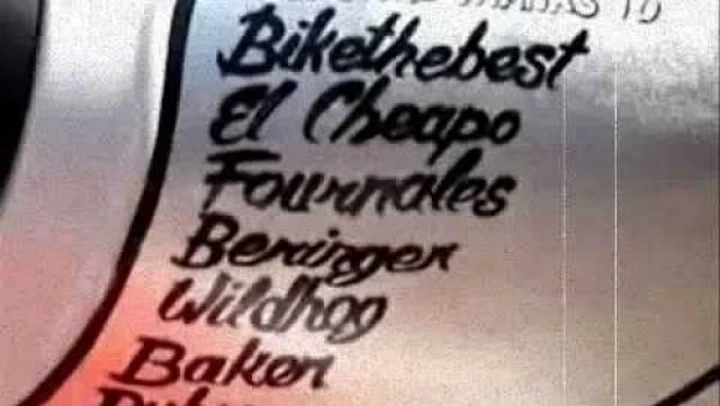 THANKS TO
Bikethebest
El Cheapo
Fournales
Beringer
Wildhog
Baker